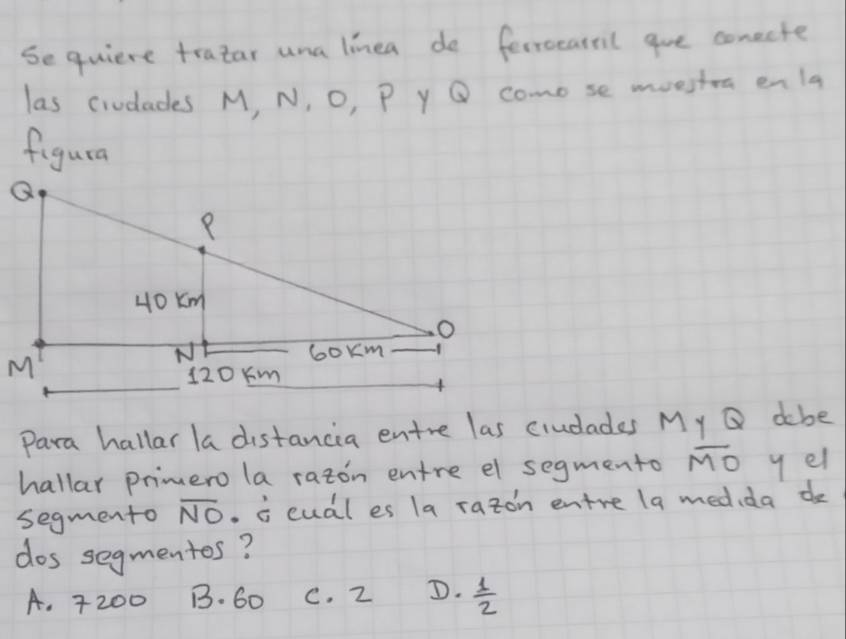 Se quiere trazar una línea de ferrocarril que conecte
las ciudades M, N, O, P y Q como se muestra en la
figura
Q
P
40 Km
O
M
N
60 Km
120 Km
Para hallar la distancia entre las ciudades M y Q debe
hallar primero la razón entre el segmento M̅O̅ y el
segmento N̅O̅. ¿ cuál es la razón entre la medida de
dos segmentos?
A. 7200 B. 60 C. 2 D. 1/2